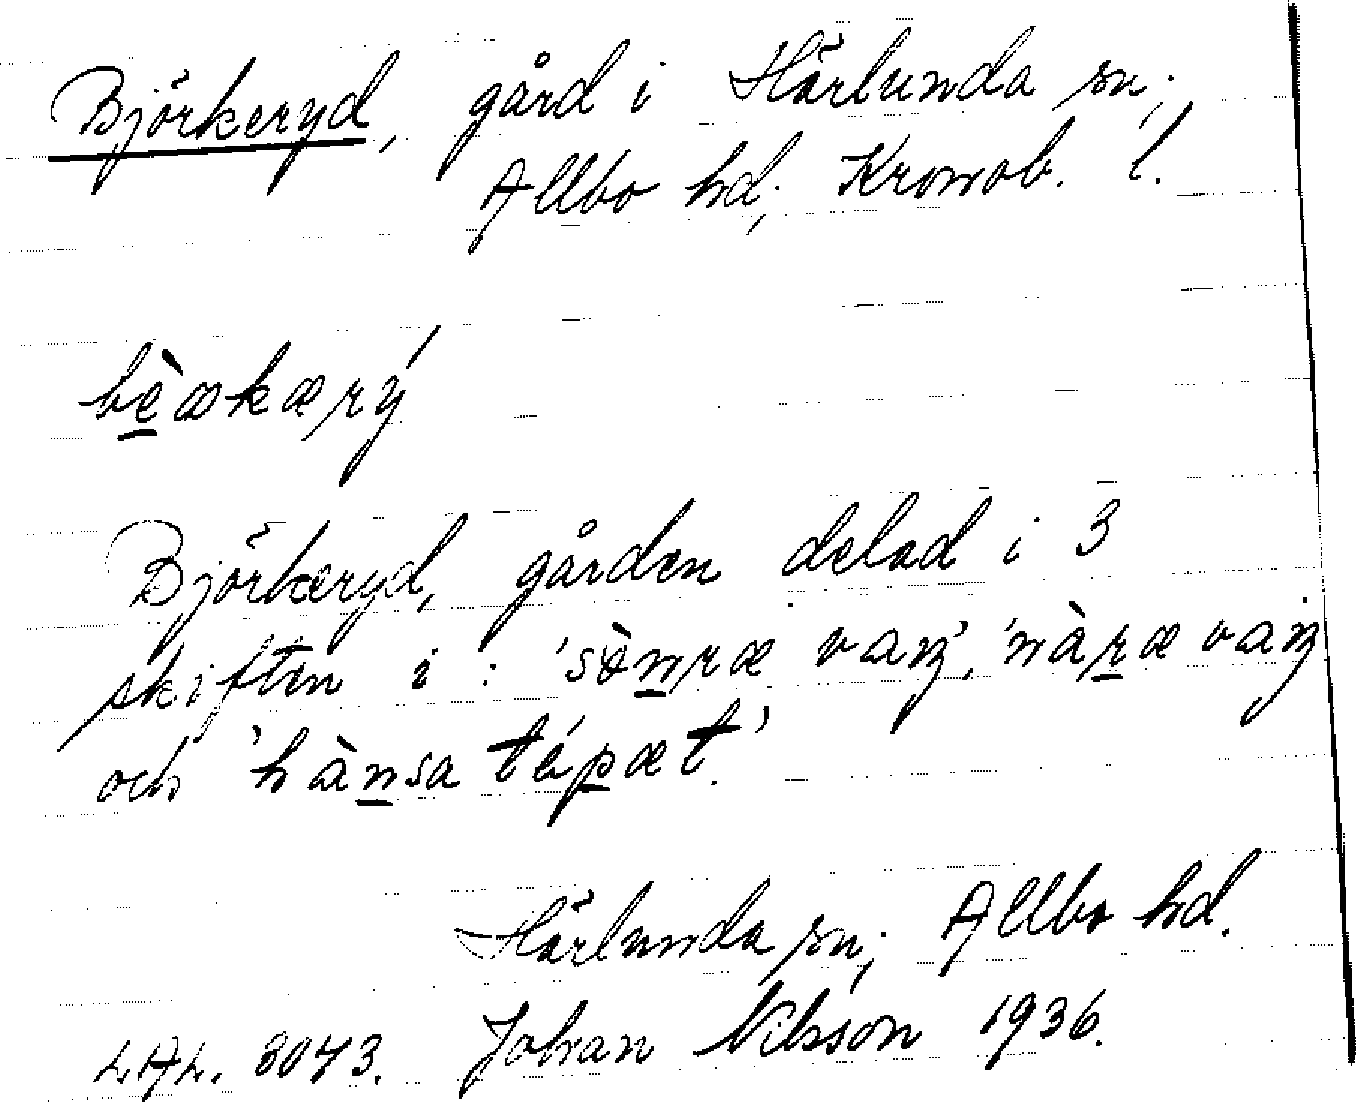 Björkeryd, gård i Härlunda sn;
Allbo hd; Kronob. l.
bèækærý
Björkeryd, gården delad i 3
skiften i: 'sènræ vaŋ', 'nàræ vaŋ'
och 'hànsa tépæt'.
Härlunda sn; Allbo hd.
LAL. 3073. Johan Nilsson 1936.